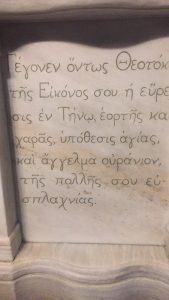 Γέγονεν ὄντως Θεοτόκ
τῆς Εἰκόνος σου ἡ εὕρε
σις ἐν Τήνῳ, ἑορτῆς κα
χαρᾶς, ὑπόθεσις ἁγίας,
καὶ ἄγγελμα οὐράνιον,
τῆς πολλῆς σου εὐ-
σπλαχνίας.